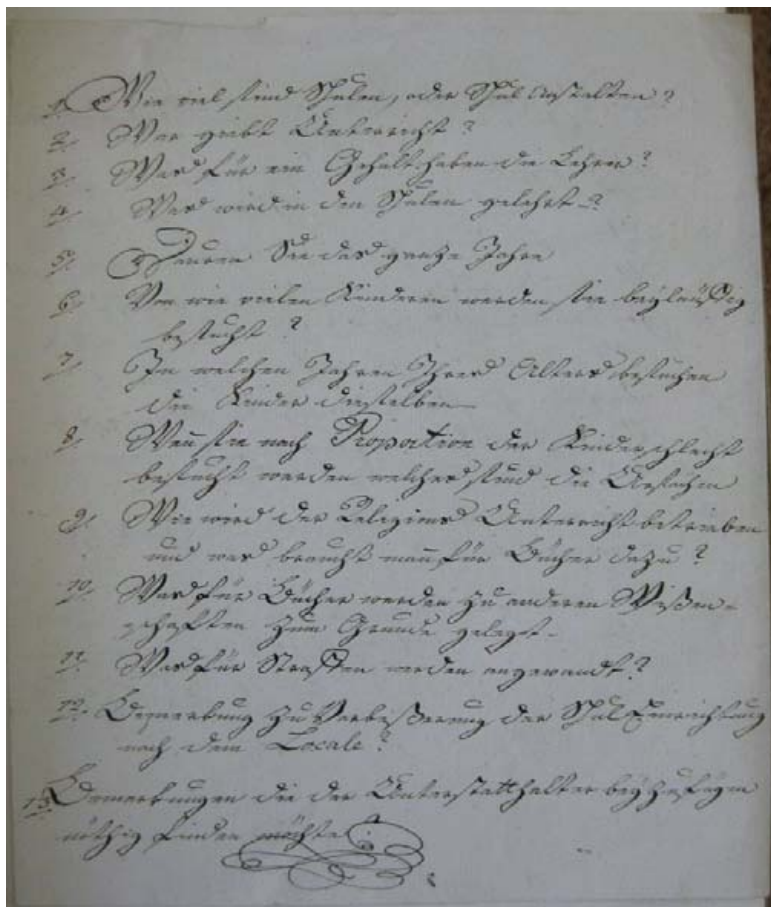 1. Wie viel sind Schulen, oder Schul Anstalten?
2. Wer giebt Unterricht?
3. Was für ein Gehalt haben die Lehrer?
4. Was wird in den Schulen gelehrt?
5. Dauren Sie das ganze Jahr
6. Von wie vielen Kinderen werden sie beyläuffig
besucht?
7. In welchen Jahren Ihres Alters besuchen
die Kinder dieselben
8. Wenn sie nach Proportion der Kinder schlecht
besucht werden welches sind die Ursachen
9. Wie wird der Religions Unterricht betrieben
und was braucht man für Bücher dazu?
10. Was für Bücher werden zu anderen Wißen-
schaften zum Grunde gelegt
11. Was für Straffen werden angewandt?
12. Bemerkung zu Verbeßerung der Schul Einrichtung
nach dem Locale?
13. Bemerkungen die der Unterstatthalter beyzufügen
nöthig finden möchte?